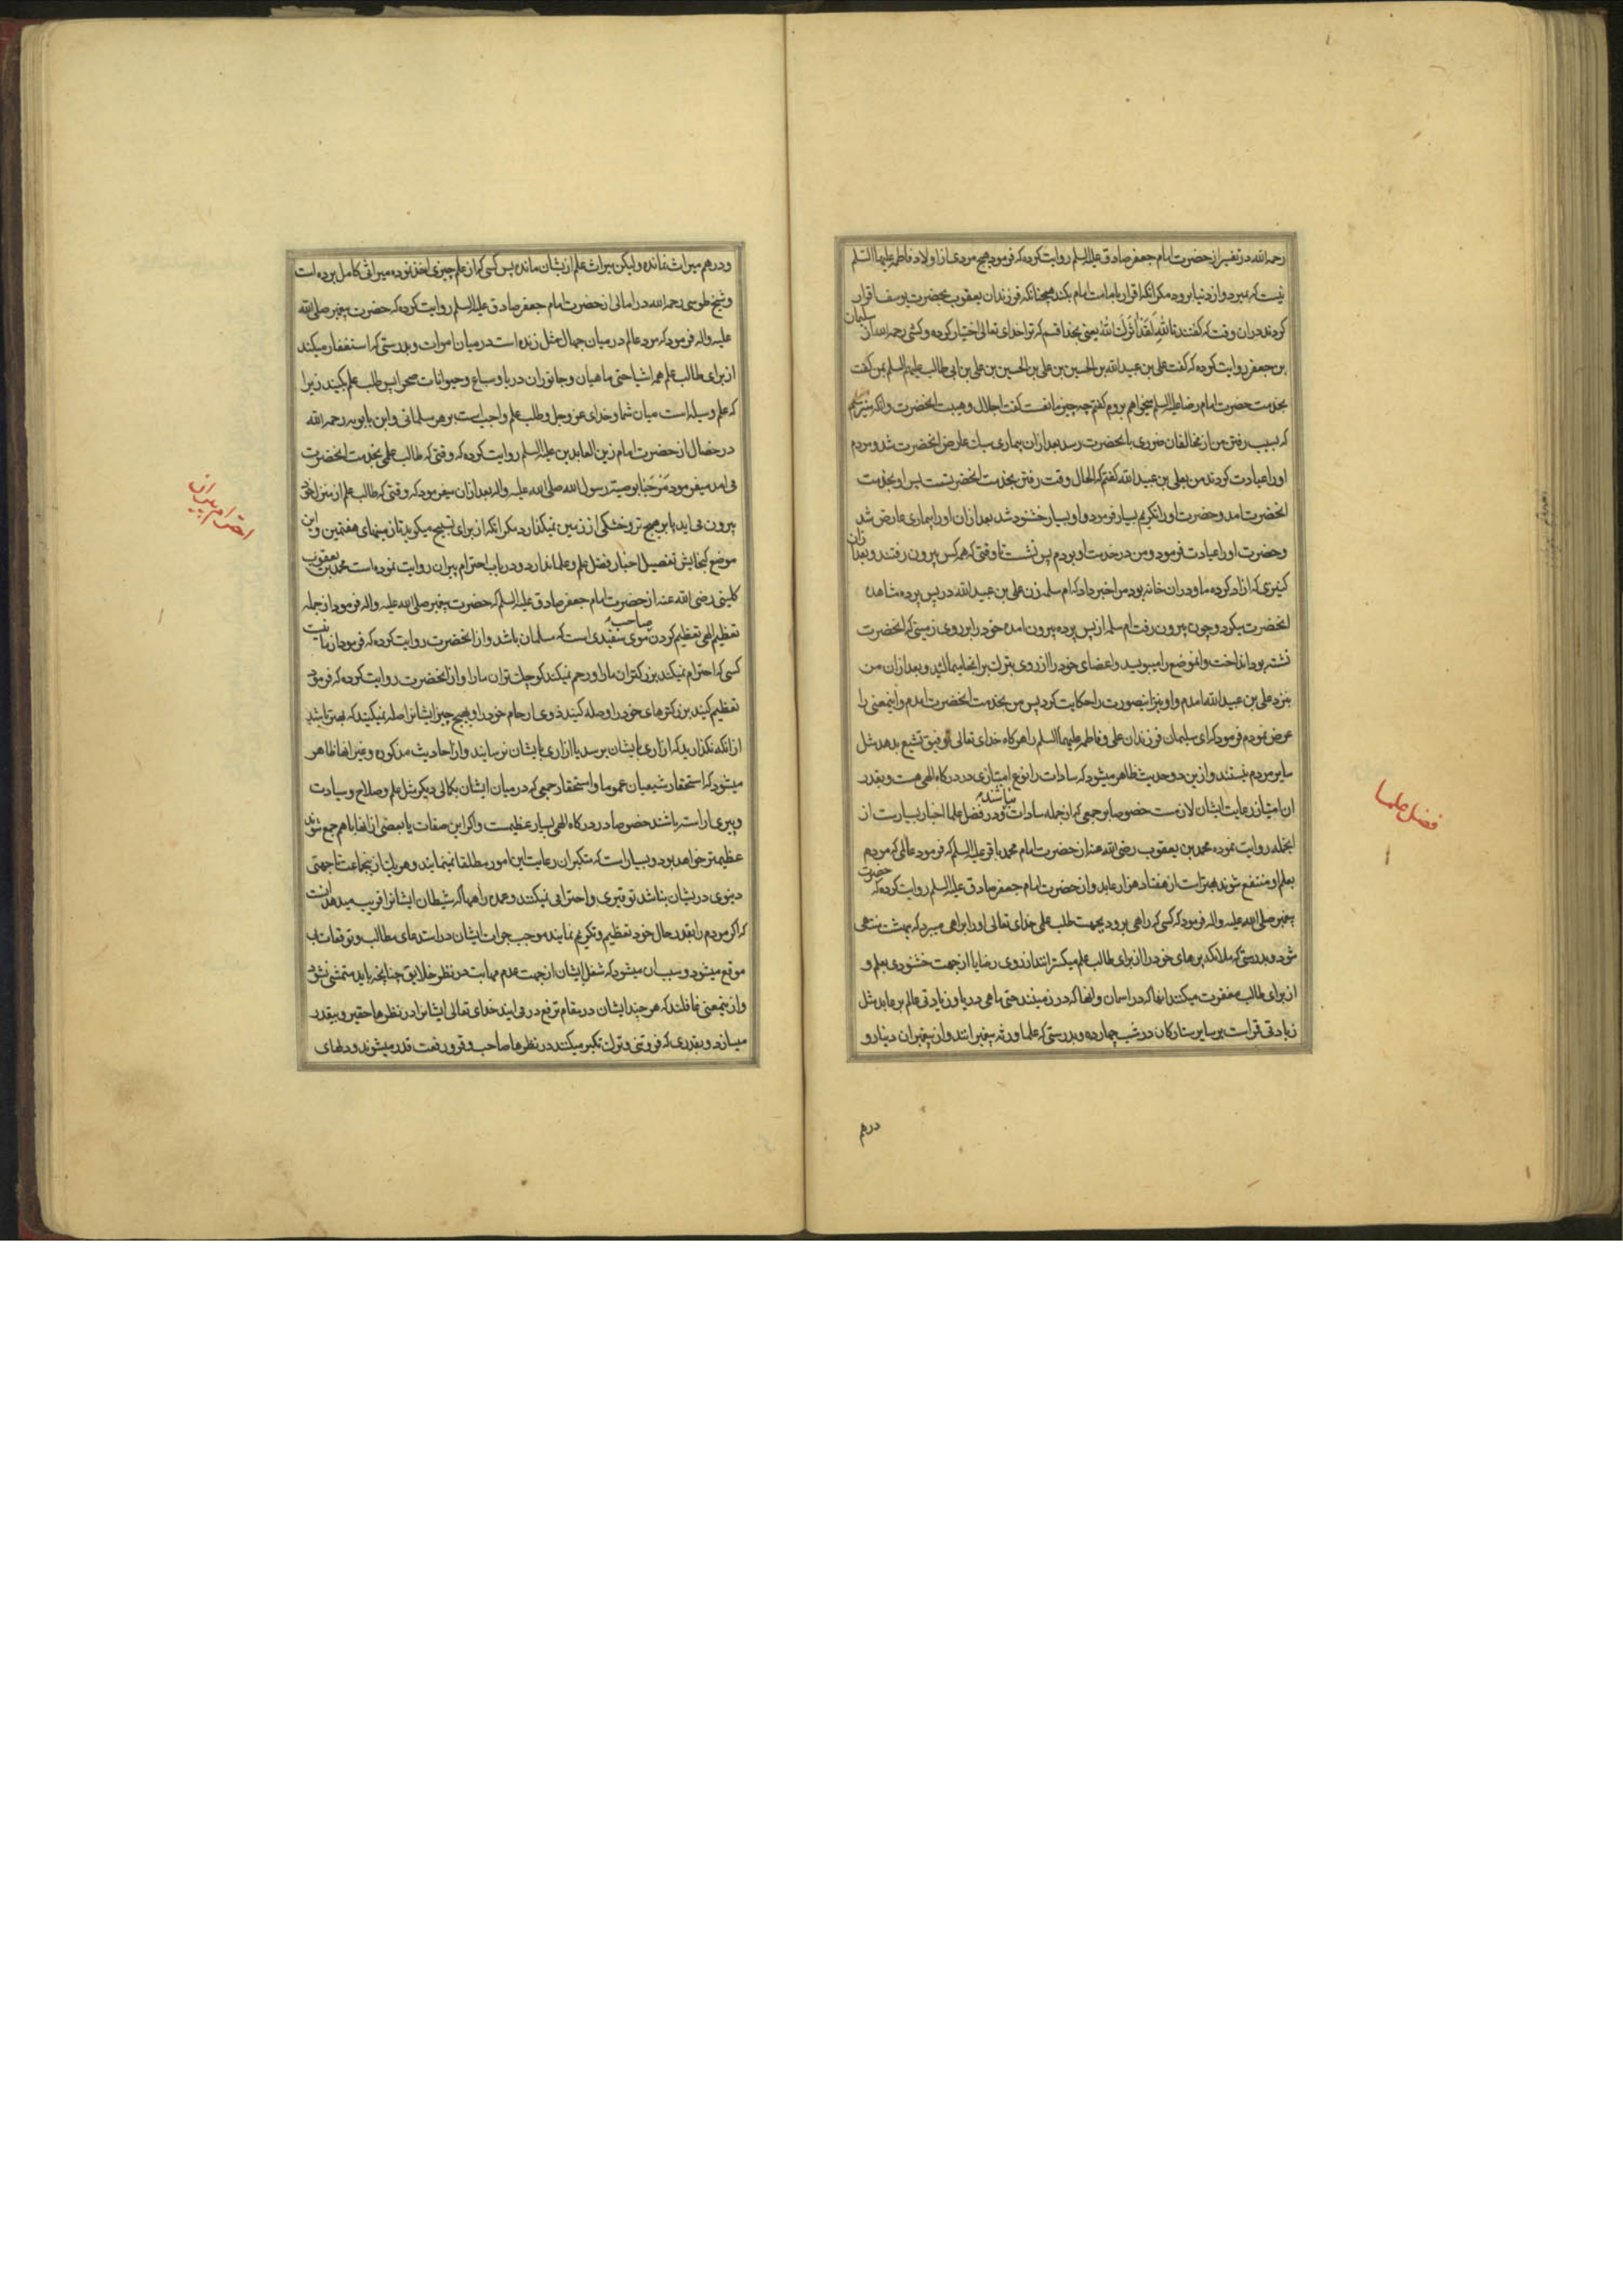 رحمه الله در تفسیر از حضرت امام جعفر صادق علیه السلم روایت کرده که فرمود هیچ مردی از اولاد فاطمه علیها السلم
نیست که بمیرد و از دنیا برود مکر انکه اقرار بامامت امام بکند همچنانکه فرزندان یعقوب بحضرت یوسف اقرار
کردند دران وقت که کفتند تالله لقد اثرک الله یعنی بخدا قسم که ترا خدای تعالی اختیار کرده و کشی رحمه الله از سلیمان
بن جعفر روایت کرده که کفت علی بن عبید الله بن الحسین بن علی بن الحسین بن علی بن ابی طالب علیهم السلم بمن کفت
بخدمت حضرت امام رضا علیه السلم میخواهم بروم کفتم چه چیز مانعست کفت اجلال و هیبت انحضرت و انکه میترسم
که بسبب رفتن من از مخالفان ضرری بانحضرت رسد بعد ازان بیماری سبک عارض انحضرت شد و مردم
او را عیادت کردند من بعلی بن عبید الله کفتم که الحال وقت رفتن بخدمت انحضرتست پس او بخدمت
انحضرت امد و حضرت او را تکریم بسیار فرمود و او بسیار خشنود شد بعد ازان او را بیماری عارض شد
و حضرت او را عیادت فرمود و من در خدمت او بودم پس نشست تا وقتی که همه کس بیرون رفتند و بعد ازان
کنیزی که ازاد کرده ما و دران خانه بود مرا خبر داد که ام سلمه زن علی بن عبید الله در پس پرده مشاهده
انحضرت میکرد و چون بیرون رفت ام سلمه از پس پرده بیرون امده خود را بر روی زمینی که انحضرت
نشسته بود انداخت و انموضع را میبوسید و اعضای خود را از روی تبرک بر انجا میمالید و بعد ازان من
بنزد علی بن عبید الله امدم و او نیز اینصورت را حکایت کرد پس من بخدمت انحضرت امدم و اینمعنی را
عرض نمودم فرمود که ای سلیمان فرزندان علی و فاطمه علیهما السلم را هر کاه خدای تعالی توفیق تشیع بدهد مثل
سایر مردم نیستند و ازین دو حدیث ظاهر میشود که سادات را نوع امتیازی در درکاه الهی هست و بقدر
ان امتیاز رعایت ایشان لازمست خصوصا بر جمعی که از جمله سادات میباشند و در فضل علما اخبار بسیارست از
انجمله روایت نموده محمد بن یعقوب رضی الله عنه از حضرت امام محمد باقر علیه السلم که فرمود عالمی که مردم
بعلم او منتفع شوند بهتر است از هفتاد هزار عابد و از حضرت امام جعفر صادق علیه السلم روایت کرده که حضرت
پیغمبر صلی الله علیه و اله فرمود که کسی که راهی برود بجهت طلب علمی خدای تعالی او را براهی میبرد که ببهشت منتهی
شود و بدرستی که ملائکه پرهای خود را از برای طالب علم میکسترانند از روی رضا یا از جهت خشنودی بعلم و
از برای طالب علم مغفرت میکنند انها که در اسمان و انها که در زمینند حتی ماهی دریا و زیادتی عالم بر عابد مثل
زیادتی قمر است بر سایر ستارکان در شب چهارده و بدرستی که علما ورثه پیغمبرانند و از پیغمبران دینار و
درهم
فضل علما
و درهم میراث نمانده و لیکن میراث علم ازیشان مانده پس کسی که از علم چیزی اخذ نموده میراثی کامل برده است
و شیخ طوسی رحمه الله در امالی از حضرت امام جعفر صادق علیه السلم روایت کرده که حضرت پیغمبر صلی الله
علیه و اله فرمود که مرد عالم در میان جهال مثل زنده است در میان اموات و بدرستی که استغفار میکند
از برای طالب علم همه اشیا حتی ماهیان و جانوران دریا و سباع و حیوانات صحرا پس طلب علم بکنید زیرا
که علم وسیله است میان شما و خدای عز و جل و طلب علم واجب است بر هر مسلمانی و ابن بابویه رحمه الله
در خصال از حضرت امام زین العابدین علیه السلم روایت کرده که وقتی که طالب علمی بخدمت انحضرت
می امد میفرمود مرحبا بوصیة رسول الله صلی الله علیه و اله بعد ازان میفرمود که وقتی که طالب علم از منزل خود
بیرون می اید پا بر هیچ تر و خشکی از زمین نمیکذارد مکر انکه از برای تسبیح میکوید تا زمینهای هفتمین و این
موضع کنجایش تفصیل اخبار فضل علم و علما ندارد و در باب احترام پیران روایت نموده است محمد بن یعقوب
کلینی رضی الله عنه از حضرت امام جعفر صادق علیه السلم که حضرت پیغمبر صلی الله علیه و اله فرمود از جمله
تعظیم الهی تعظیم کردن صاحب موی سفیدی است که مسلمان باشد و از انحضرت روایت کرده که فرمود از ما نیست
کسی که احترام نمیکند بزرکتران ما را و رحم نمیکند کوچک تران ما را و از انحضرت روایت کرده که فرمود
تعظیم کنید بزرکترهای خود را و صله کنید ذوی ارحام خود را و بهیچ چیز ایشانرا صله نمیکنید که بهتر باشد
از انکه نکذارید که ازاری بایشان برسد یا ازاری بایشان نرسانید و از احادیث مذکوره و غیر انها ظاهر
میشود که استحقار شیعیان عموما و استحقار جمعی که در میان ایشان بکمالی دیکر مثل علم و صلاح و سیادت
و پیری اراسته باشند خصوصا در درکاه الهی بسیار عظیمست و اکر این صفات یا بعضی از انها با هم جمع شوند
عظیمتر خواهد بود و بسیار است که متکبران رعایت این امور مطلقا نمینمایند و هر یک ازینجماعت تا جهتی
دینوی دریشان نباشد توقیری و احترامی نمیکنند و عمده راهها که شیطان ایشانرا فریب میدهد انست
که اکر مردم را بقدر حال خود تعظیم و تکریم نمایند موجب جرات ایشان در استدعای مطالب و توقعات بی
موقع میشود و سبب ان میشود که شغل ایشان از جهت عدم مهابت در نظر خلایق چنانچه باید متمشی نشود
و ازینمعنی غافلند که هر چند ایشان در مقام ترفع در می ایند خدای تعالی ایشانرا در نظرها حقیر و بیقدر
میسازد و بقدری که فروتنی و ترک تکبر میکنند در نظرها صاحب وقر و رفعت قدر میشوند و دلهای
احترام پیران